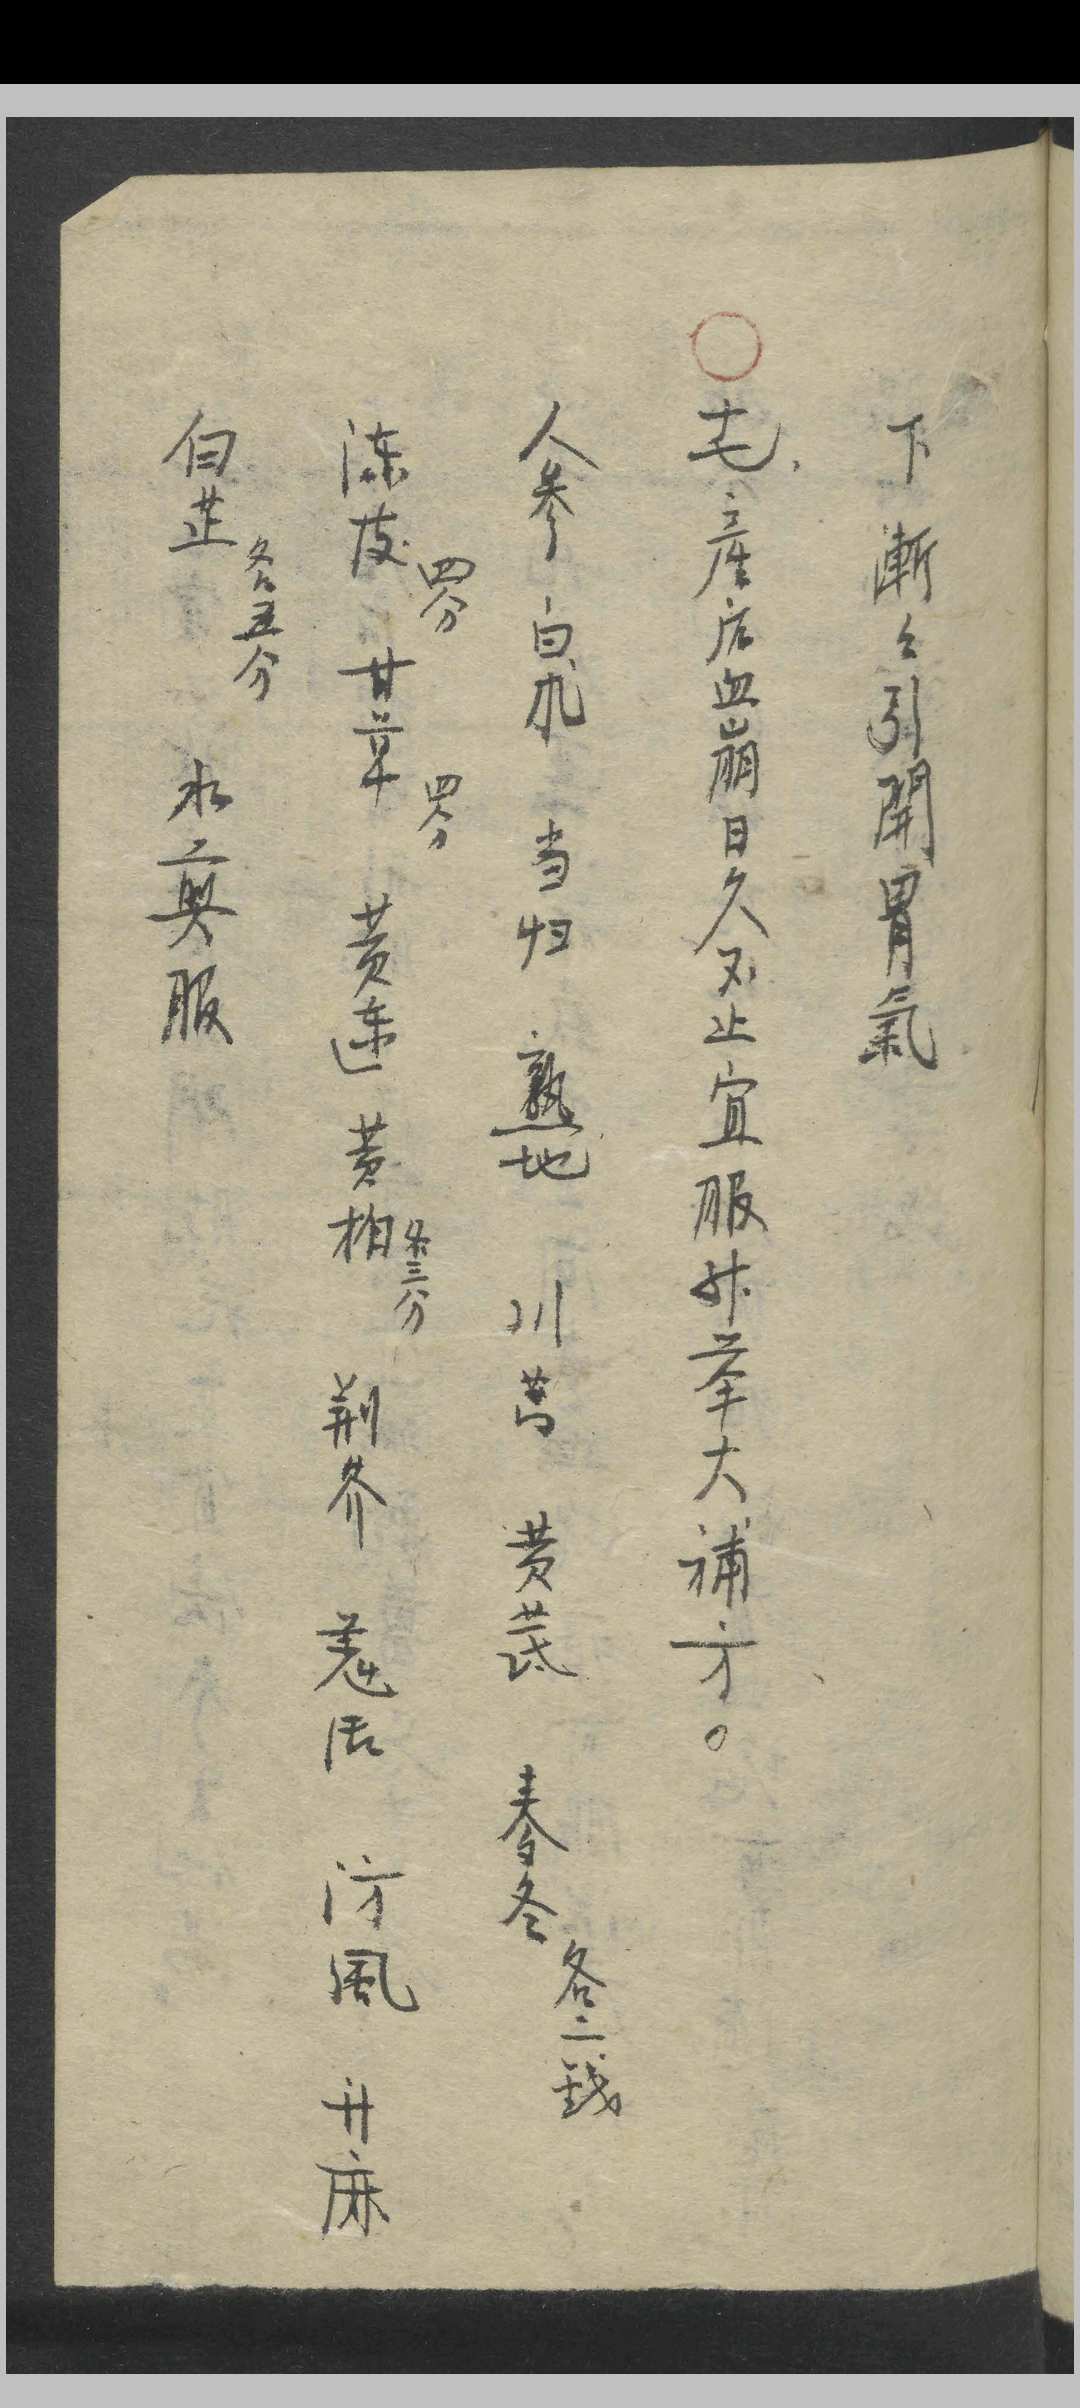 下漸々引開胃氣
産后血崩日久不止宜服升举大補方。
人参 白朮 当归 熟地 川芎 黄芪 麥冬 各二钱
陈皮 四分 甘草 四分 黄连 黄柏 各三分 荆芥 羌活 防風 升麻
白芷 各五分 水煎服